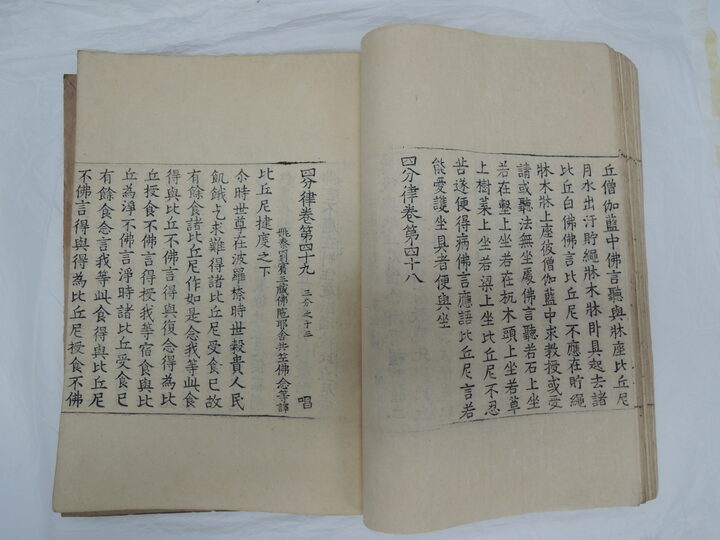 丘僧伽藍中佛言聽與牀座比丘尼
月水出汙貯繩牀木牀卧具起去諸
比丘白佛佛言比丘尼不應在貯繩
牀木牀上座彼僧伽藍中求教授或受
請或聽法無坐處佛言聽若石上坐
若在墼上坐若在杌木頭上坐若草
上樹葉上坐若梁上坐比丘尼不忍
苦遂便得病佛言應語比丘尼言若
能愛護坐具者便與坐
四分律卷第四十八
四分律卷第四十九 三分之十三 唱
姚秦罽賓三藏佛陁耶舍共竺佛念等譯
比丘尼揵度之下
尒時世尊在波羅柰時世穀貴人民
飢餓乞求難得諸比丘尼受食已故
有餘食諸比丘尼作如是念我等此食
得與比丘不佛言得與復念得為比
丘授食不佛言得授我等宿食與比
丘為淨不佛言淨時諸比丘受食已
有餘食念言我等此食得與比丘尼
不佛言得與得為比丘尼授食不佛